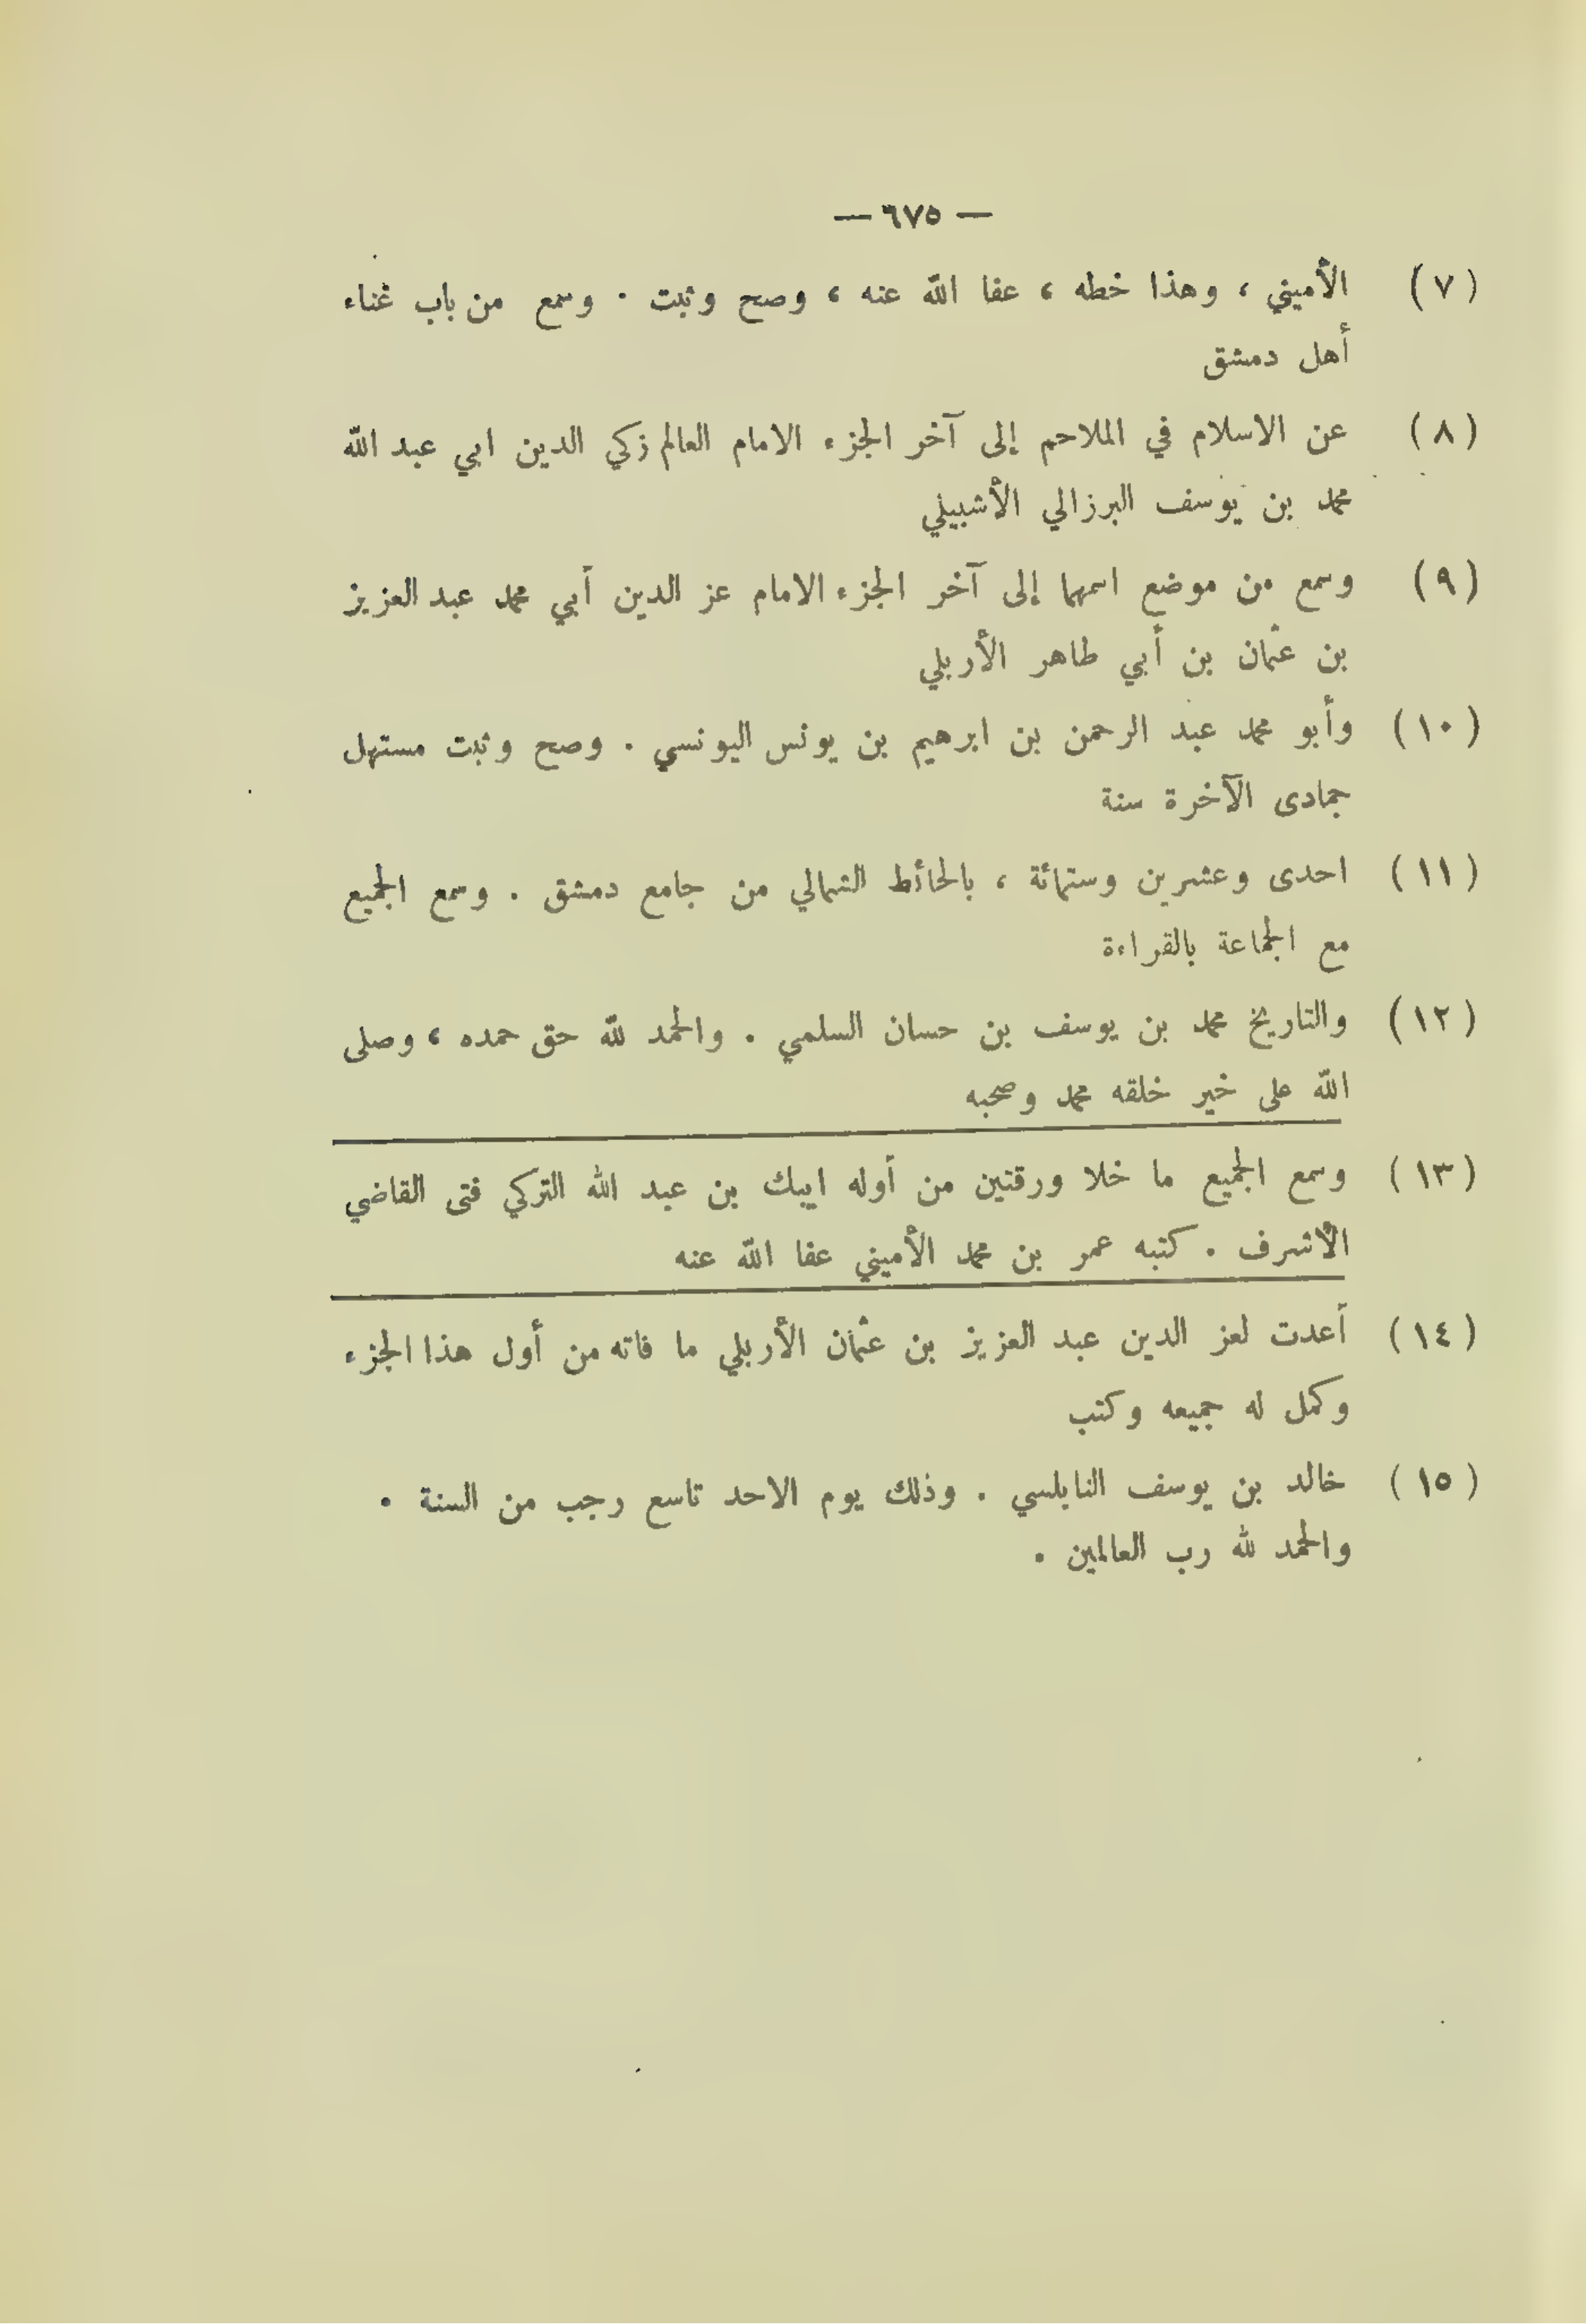 — ٦٧٥ —
(٧) الأميني ، وهذا خطه ، عفا الله عنه ، وصح وثبت . وسمع من باب غناء
أهل دمشق
(٨) عن الاسلام في الملاحم إلى آخر الجزء الامام العالم زكي الدين ابي عبد الله
محمد بن يوسف البرزالي الأشبيلي
(٩) وسمع من موضع اسمهما إلى آخر الجزء الامام عز الدين أبي محمد عبد العزيز
بن عثمان بن أبي طاهر الأربلي
(١٠) وأبو محمد عبد الرحمن بن ابرهيم بن يونس اليونسي . وصح وثبت مستهل
جمادى الآخرة سنة
(١١) احدى وعشرين وستمائة ، بالحائط الشمالي من جامع دمشق . وسمع الجميع
مع الجماعة بالقراءة
(١٢) والتاريخ محمد بن يوسف بن حسان السلمي . والحمد لله حق حمده ، وصلى
الله على خير خلقه محمد وصحبه
(١٣) وسمع الجميع ما خلا ورقتين من أوله ايبك بن عبد الله التركي فتى القاضي
الأشرف . كتبه عمر بن محمد الأميني عفا الله عنه
(١٤) أعدت لعز الدين عبد العزيز بن عثمان الأربلي ما فاته من أول هذا الجزء
وكمل له جميعه وكتب
(١٥) خالد بن يوسف النابلسي . وذلك يوم الاحد تاسع رجب من السنة .
والحمد لله رب العالمين .